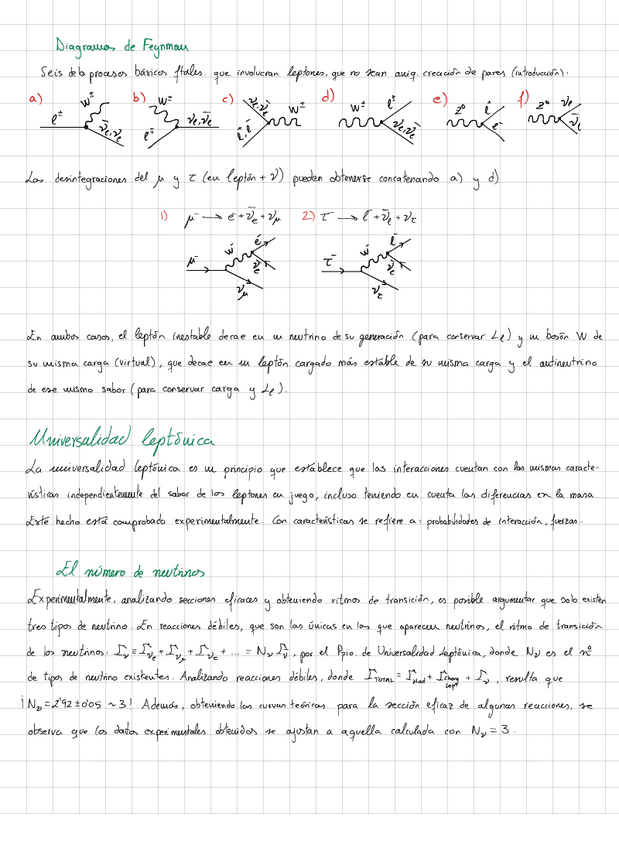 Diagramas de Feynman
Seis de los procesos básicos ftales. que involucran leptones, que no sean aniq. creación de pares (introducción):
a) b) c) d) e) f)
W± W± ν̄ₑ,νₑ W± W± ℓ± Z⁰ ℓ⁻ Z⁰ νₑ
ℓ± ν̄ₑ,νₑ ℓ∓ νₑ,ν̄ₑ νₑ,ν̄ₑ e⁻ ν̄ₑ
Las desintegraciones del μ y τ (en leptón + ν) pueden obtenerse concatenando a) y d)
1) μ⁻ → e⁻ + ν̄ₑ + ν_μ 2) τ⁻ → ℓ⁻ + ν̄_ℓ + ν_τ
e⁻ ℓ⁻
μ⁻ W⁻ ν̄ₑ τ⁻ W⁻ ν̄ₑ
ν_μ ν_τ
En ambos casos, el leptón inestable decae en un neutrino de su generación (para conservar Lℓ) y un bosón W de
su misma carga (virtual), que decae en un leptón cargado más estable de su misma carga y el antineutrino
de ese mismo sabor (para conservar carga y Lℓ).
Universalidad leptónica
La universalidad leptónica es un principio que establece que las interacciones cuentan con las mismas caracte-
rísticas independientemente del sabor de los leptones en juego, incluso teniendo en cuenta las diferencias en la masa.
Este hecho está comprobado experimentalmente. Con características se refiere a: probabilidades de interacción, fuerzas.
El número de neutrinos
Experimentalmente, analizando secciones eficaces y obteniendo ritmos de transición, es posible argumentar que solo existen
tres tipos de neutrino. En reacciones débiles, que son las únicas en las que aparecen neutrinos, el ritmo de transición
de los neutrinos: Γ_ν = Γ_νₑ + Γ_ν_μ + Γ_ν_τ + ... = N_ν Γ_ν, por el Ppio. de Universalidad Leptónica, donde N_ν es el nº
de tipos de neutrino existentes. Analizando reacciones débiles, donde Γ_TOTAL = Γ_Had + Γ_charg Lept + Γ_ν, resulta que
¡N_ν = 2'92 ± 0'05 ~ 3! Además, obteniendo las curvas teóricas para la sección eficaz de algunas reacciones, se
observa que los datos experimentales obtenidos se ajustan a aquella calculada con N_ν = 3.